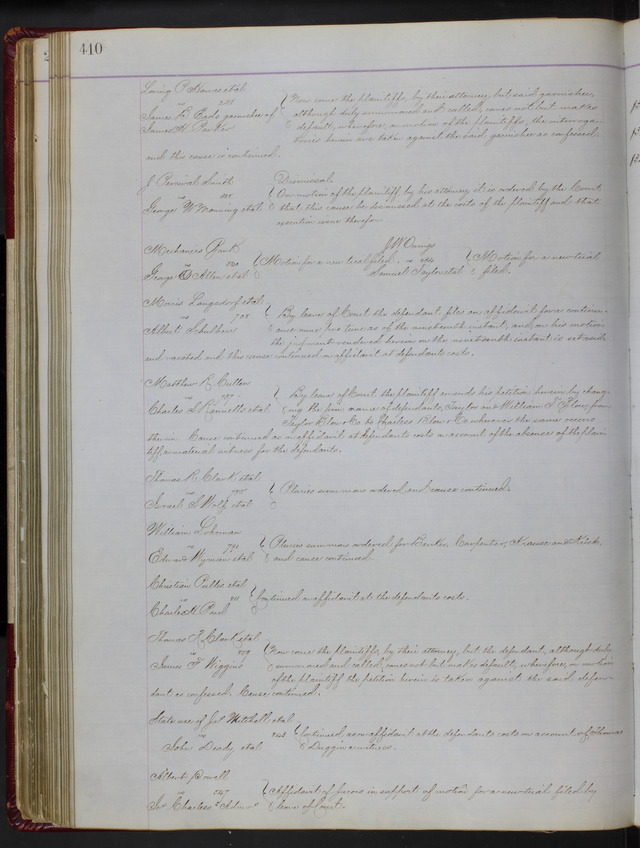 410
Loring P. Hawes et al
vs
James B. Eads garnishee of } Now come the plaintiffs, by their attorney, but said garnishee,
James H. Parker although duly summoned and called, comes not but makes
default, wherefore, on motion of the plaintiffs, the interroga-
tories herein are taken against the said garnishee as confessed.
and this cause is continued.
J Percival Smith Dismissal.
vs } On motion of the plaintiff by his attorney it is ordered by the Court
George W Manning et al that this cause be dismissed at the costs of the plaintiff and that
execution issue therefor
Mechanics Bank
vs } Motion for a new trial filed.
George Allen et al
J W Owings
vs } Motion for a new trial
Samuel Taylor et al filed.
Morris Langsdorf et al
vs 708 } By leave of Court the defendant files an affidavit for a continu-
Albert Schulherr ance nunc pro tunc as of the nineteenth instant, and on his motion
the judgment rendered herein on the nineteenth instant is set aside
and vacated and this cause continued on affidavit at defendants costs.
Matthew R Cullen
vs } By leave of Court the plaintiff amends his petition herein by chang-
Charles S Rannells et al ing the firm name of defendants, Taylor and William T. Blow, from
Taylor Blow & Co to Charless Blow & Co wherever the same occurs
therein Cause continued on affidavit at defendants costs on account of the absence of the plain-
tiff a material witness for the defendants.
Thomas R. Clark et al
vs } Pluries summons ordered and cause continued.
Israel S Wolf et al
William Lohman
vs 791 } Pluries summons ordered for Carpenter, Krause and
Edward Wyman et al and cause continued
Christian Pulles et al
vs } Continued on affidavit at the defendants costs.
Charles H. Pond
Thomas R. Clark et al
vs } Now come the plaintiffs, by their attorney, but the defendant, although duly
James F Wiggins summoned and called, comes not but makes default, wherefore, on motion
of the plaintiff the petition herein is taken against the said defen-
dant as confessed. Cause continued.
State use of Mitchell et al
vs } Continued, on affidavit at the defendants costs on account of Thomas
John Deady et al Duggin a witness.
Albert Powell
vs } Affidavit of Jurors in support of motion for a new trial filed by
Jos Charless' Admr leave of Court.